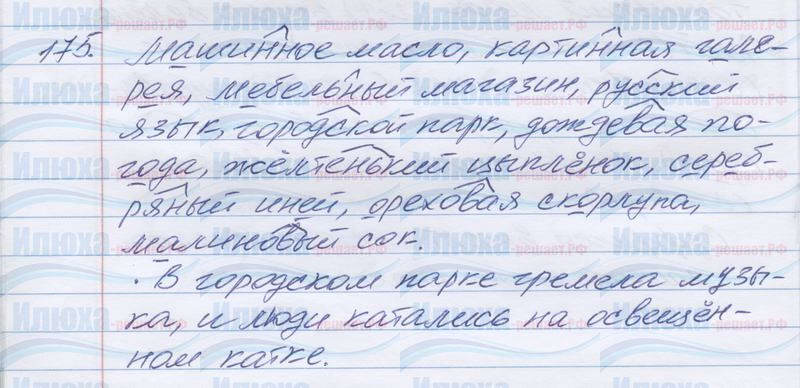 175. Машинное масло, картинная гале-
рея, мебельный магазин, русский
язык, городской парк, дождевая по-
года, жёлтенький цыплёнок, сереб-
ряный иней, ореховая скорлупа,
малиновый сок.
. В городском парке гремела музы-
ка, и люди катались на освещён-
ном катке.